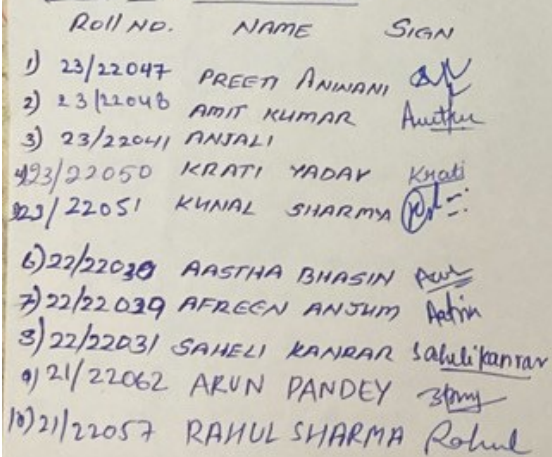 Roll NO. NAME SIGN
1) 23/22047 PREETI ANINANI
2) 23/22048 AMIT KUMAR Amitku
3) 23/22041 ANJALI
4) 23/22050 KRATI YADAV Krati
5) 23/22051 KUNAL SHARMA
6) 22/22030 AASTHA BHASIN
7) 22/22039 AFREEN ANJUM Aafrin
8) 22/22031 SAHELI KANRAR Saheli kanrar
9) 21/22062 ARUN PANDEY
10) 21/22057 RAHUL SHARMA Rahul